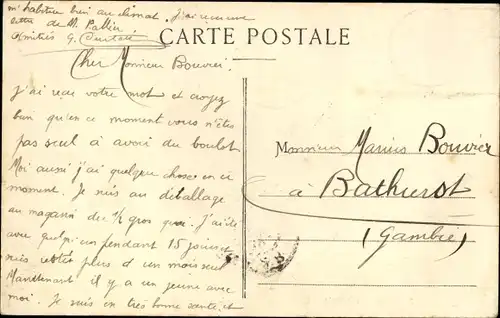 m'habitue bien au climat. J'ai reçu une
lettre de M. Pallier
Amitiés G.
CARTE POSTALE
Cher Monsieur Bouvier.
J'ai reçu votre mot et croyez
bien qu'en ce moment vous n'êtes
pas seul à avoir du boulot
Moi aussi j'ai quelque chose en ce
moment. Je suis au déballage
au magasin de 1/2 gros quoi. J'ai été
avec quelqu'un pendant 15 jours et
suis resté plus d un mois seul
Maintenant il y a un jeune avec
moi. Je suis en très bonne santé et
Monsieur Marius Bouvier
à Bathurst
(Gambie)